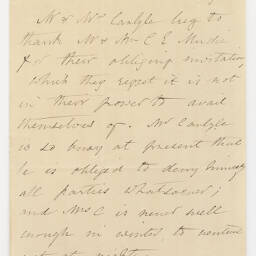 Mr & Mrs Carlyle beg to
thank Mr & Mrs C E Mudie
for their obliging invitation,
which they regret it is not
in their power to avail
themselves of. Mr Carlyle
is so busy at present that
he is obliged to deny himself
all parties whatsoever;
and Mrs C is never well
enough in winter to venture
out at night.